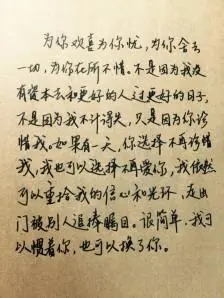 为你欢喜为你忧，为你舍去
一切，为你在所不惜。不是因为我没
有资本去和更好的人过更好的日子，
不是因为我不计得失，只是因为你珍
惜我。如果有一天，你选择不再珍惜
我，我也可以选择不再爱你，我依然
可以重拾我的信心和光环，走出
门被别人追捧瞩目。很简单，我可
以惯着你，也可以换了你。